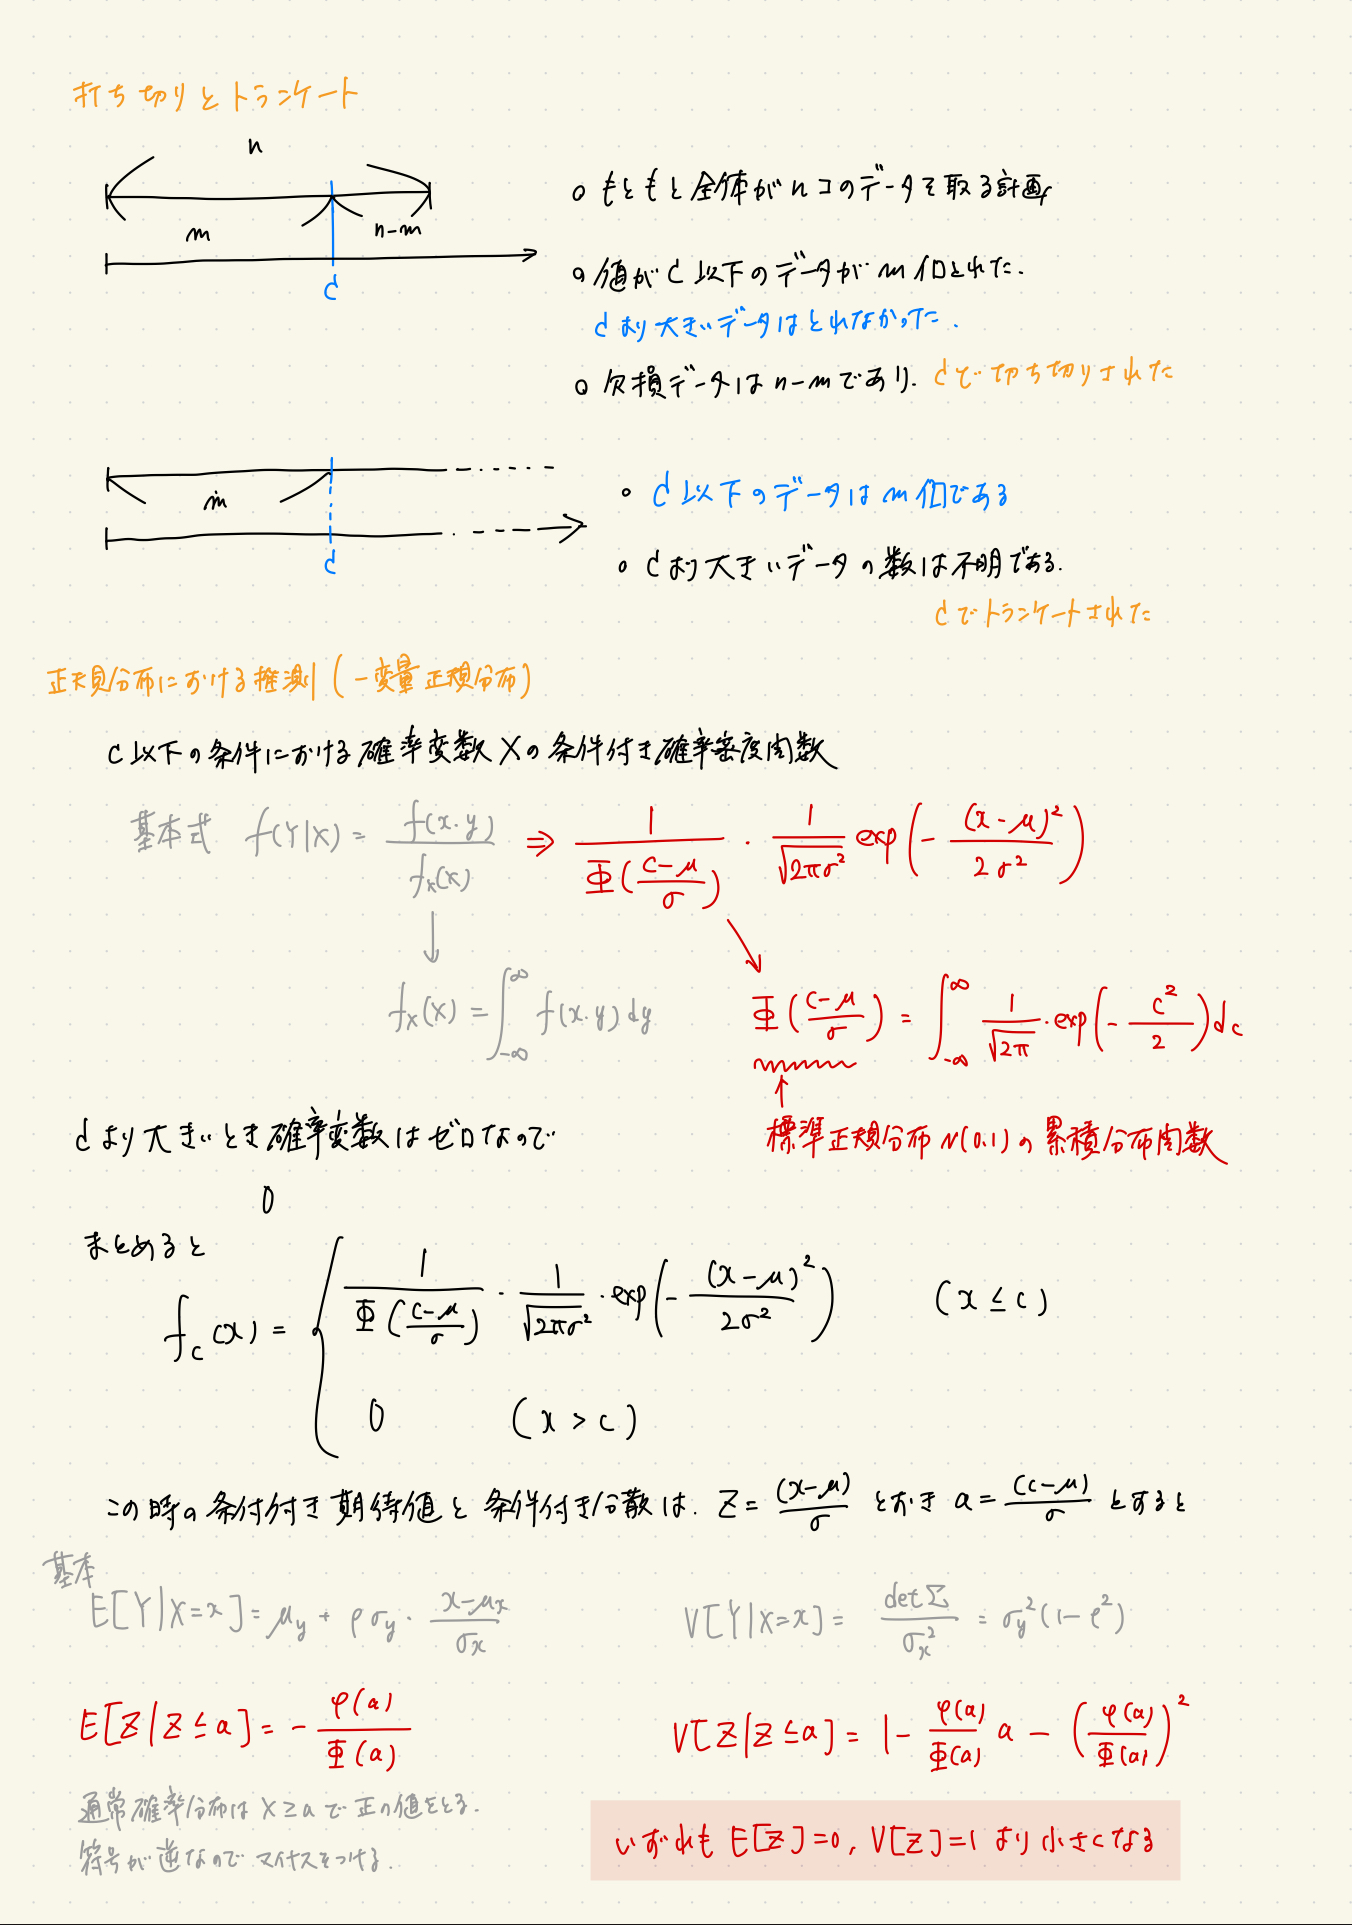 打ち切りとトランケート
n
m
n-m
c
○ もともと全体がnコのデータを取る計画
○ 値がc以下のデータがm個とれた.
cより大きいデータはとれなかった.
○ 欠損データはn-mであり. cで切ち切りされた
m
c
○ c以下のデータはm個である
○ cより大きいデータの数は不明である.
cでトランケートされた
正規分布における推測 (一変量正規分布)
c以下の条件における確率変数Xの条件付き確率密度関数
基本式 f(Y|X) = f(x.y) / fx(x) ⇒ 1 / Φ((c-μ)/σ) · 1/√2πσ² exp(- (x-μ)² / 2σ²)
↓
fx(x) = ∫_{-∞}^{∞} f(x.y) dy
Φ((c-μ)/σ) = ∫_{-∞}^{∞} 1/√2π · exp(- c²/2) dc
↑
標準正規分布 N(0.1) の累積分布関数
cより大きいとき確率変数はゼロなので
0
まとめると
f_c(x) = { 1 / Φ((c-μ)/σ) · 1/√2πσ² · exp(- (x-μ)² / 2σ²) (x ≤ c)
0 (x > c)
この時の条付付き期待値と条件付き分散は. Z = (x-μ)/σ とおき a = (c-μ)/σ とすると
基本
E[Y|X=x] = μy + ρσy · (x-μx)/σx
V[Y|X=x] = detΣ/σx² = σy²(1-ρ²)
E[Z|Z≤a] = - φ(a)/Φ(a)
V[Z|Z≤a] = 1 - φ(a)/Φ(a) a - (φ(a)/Φ(a))²
通常確率分布は X≥a で正の値をとる.
符号が逆なのでマイナスをつける.
いずれも E[Z]=0, V[Z]=1 より小さくなる